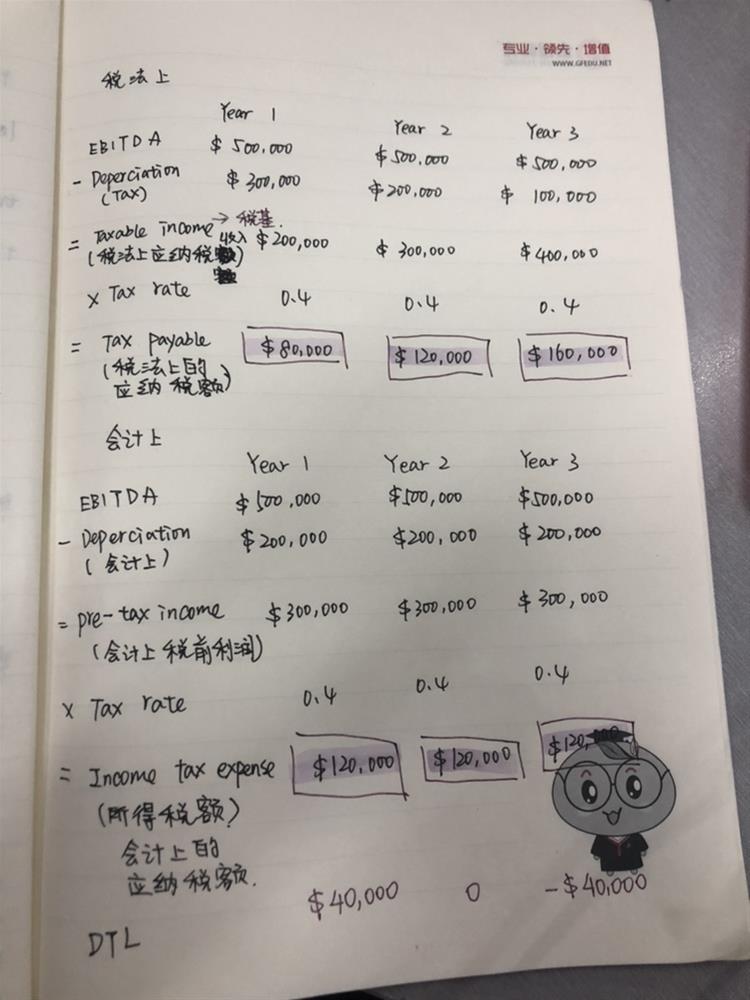 专业·领先·增值
WWW.GFEDU.NET
税法上
Year 1 Year 2 Year 3
EBITDA $500,000 $500,000 $500,000
- Deperciation $300,000 $200,000 $ 100,000
(Tax)
= Taxable income → 税基. $200,000 $300,000 $400,000
(税法上应纳税收入)
x Tax rate 0.4 0.4 0.4
= Tax payable $80,000 $120,000 $160,000
(税法上的
应纳税额)
会计上
Year 1 Year 2 Year 3
EBITDA $500,000 $500,000 $500,000
- Deperciation $200,000 $200,000 $200,000
(会计上)
= pre-tax income $300,000 $300,000 $300,000
(会计上税前利润)
x Tax rate 0.4 0.4 0.4
= Income tax expense $120,000 $120,000 $120,
(所得税额)
会计上的
应纳税额.
$40,000 0 -$40,000
DTL